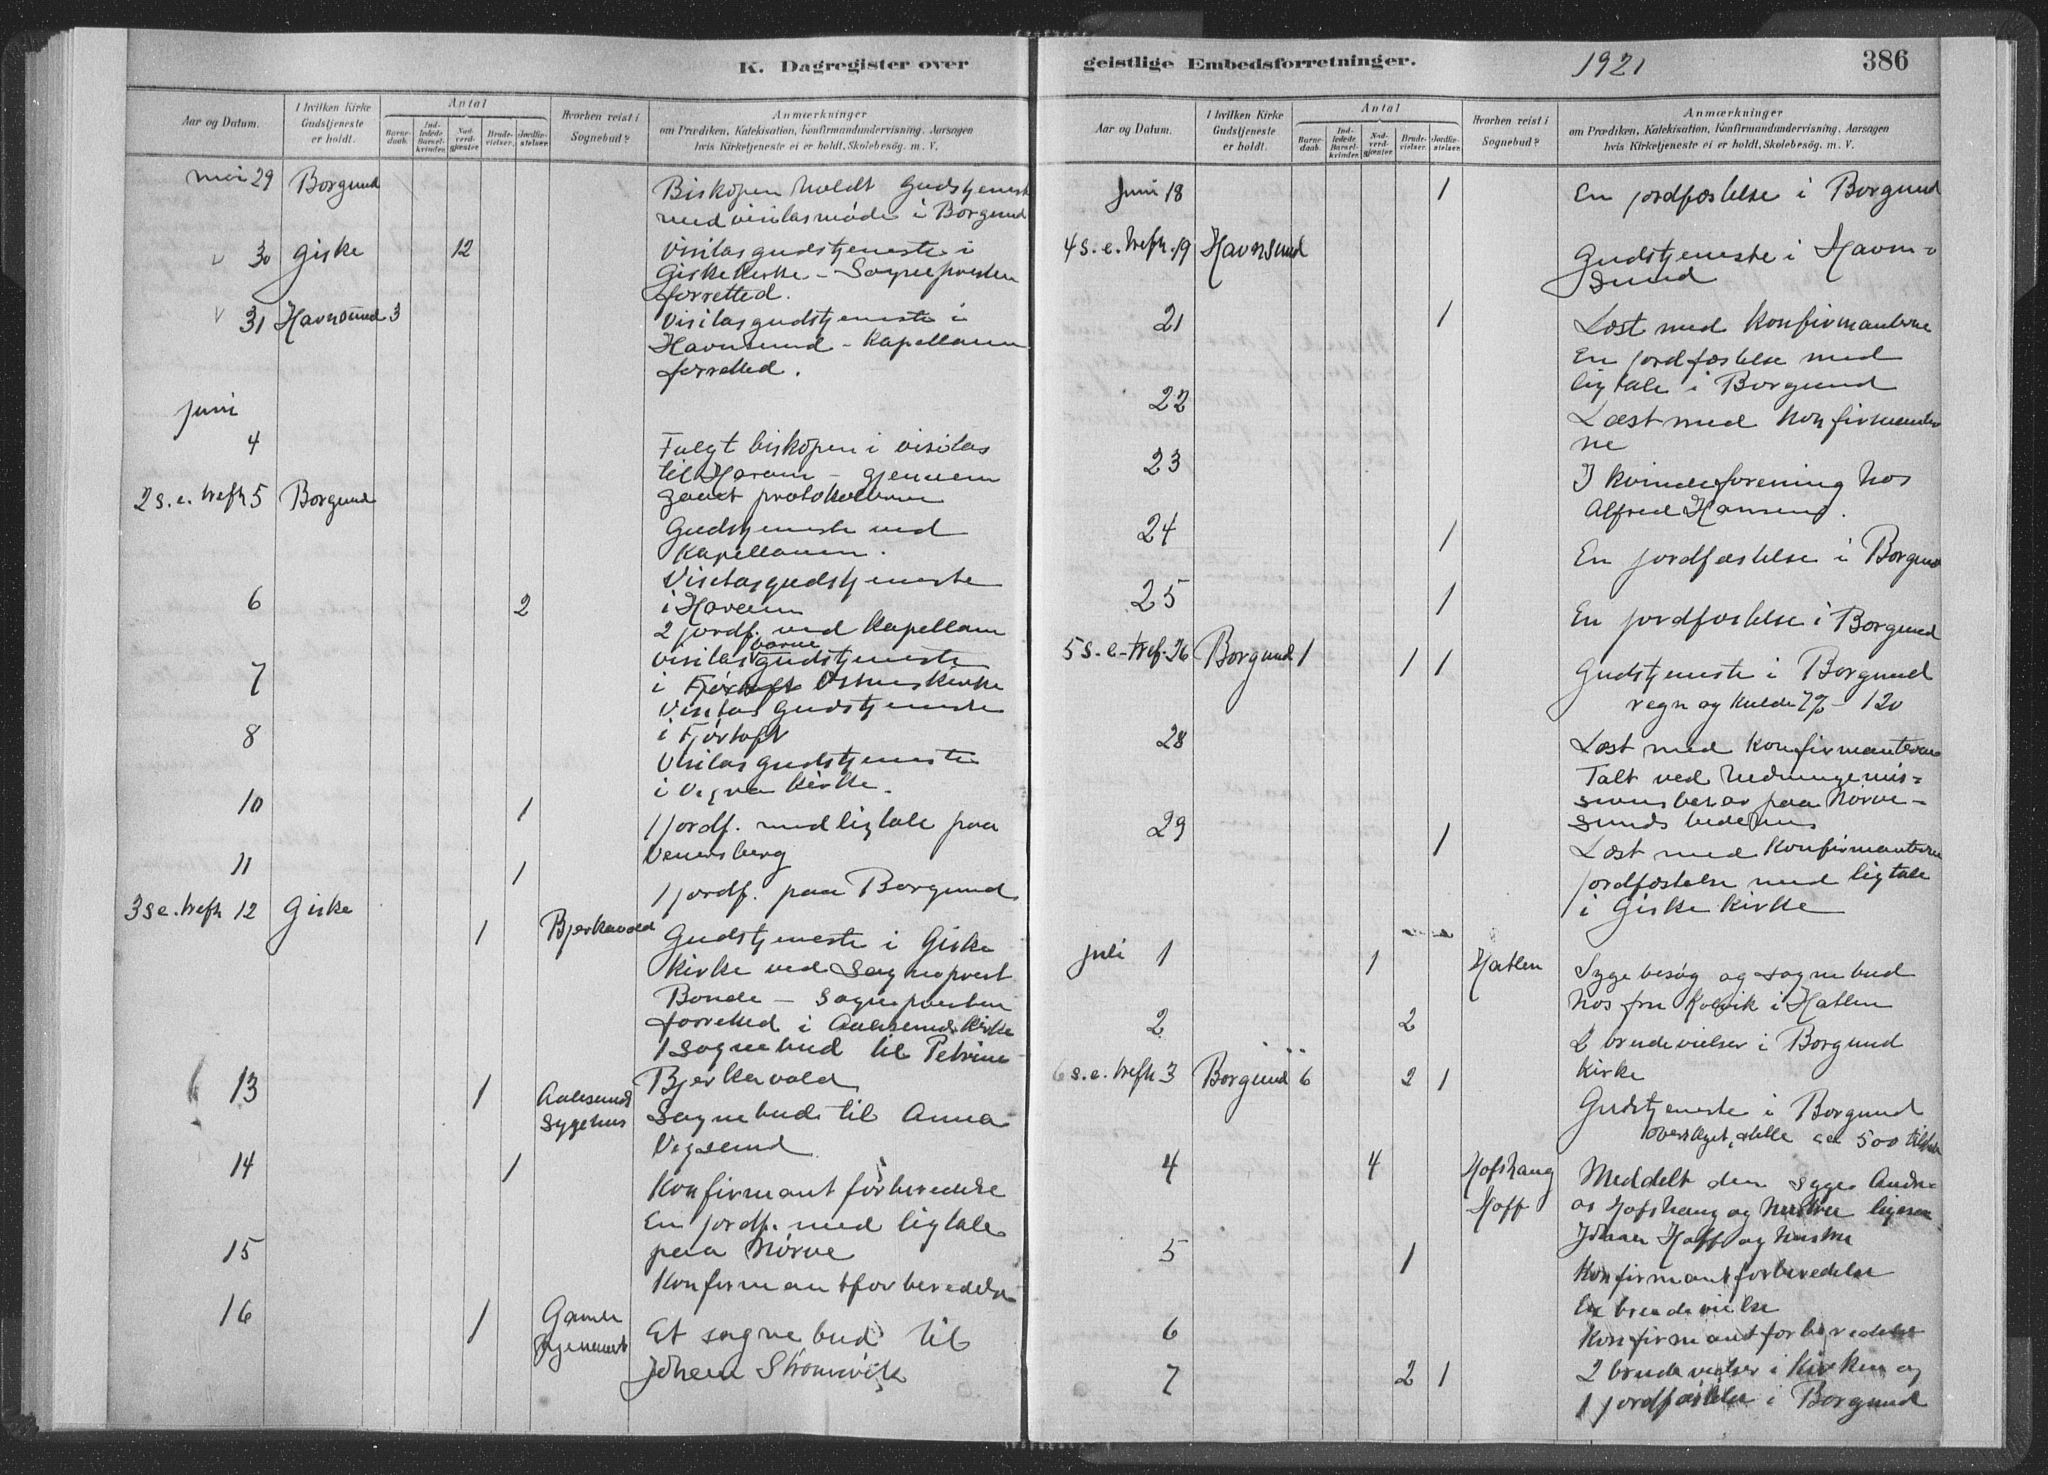 K. Dagregister over
Aar og Datum.
I hvilken Kirke Gudstjeneste er holdt.
Antal
Barnedaab.
Indledede Barselkvinder.
Nadverdgjæster
Brudevielser.
Jordfæstelser.
Hvorhen reist i Sognebud?
Anmærkninger
om Prædiken, Katekisation, Konfirmandundervisning. Aarsagen
hvis Kirketjeneste ei er holdt, Skolebesøg. m. V.
mai 29 Borgund Biskopen holdt Gudstjeneste
med visitasmøde i Borgund
30 Giske 12 Visitasgudstjeneste i
Giske kirke - Sognepresten
forretted.
31 Havnsund 3 Visitasgudstjeneste i
Havnsund - Kapellanen
forretted.
juni
4 Fulgt biskopen i visitas
til Haram - gjennem
gaaet protokollerne
2 s. e. trefh 5 Borgund
Gudstjeneste ved
Kapellanen.
Visitasgudstjeneste
6 2 i Haram
2 jordf. ved Kapellanen
Visitasgudstjeneste
7 i Fjørtoft Østneskirke
Visitas gudstjeneste
8 i Fjørtoft
Visitasgudstjeneste
i Vigra kirke.
10 1
1 jordf. med ligtale paa
11 1
1 jordf. paa Borgund
3 s. e. trefh 12 Giske 1 Bjerkavold Gudstjeneste i Giske
kirke ved Sogneprest
Bonde - Sognepresten
forretted i Aalesunds kirke
1 sognebud til Petrine
Bjerkavold
13 1 Aalesunds Sygehus
Sognebud til Anna
Vegsund
14 1
Konfirmant forberedelse
En jordf. med ligtale
paa Nørve
15
Konfirmantforberedelse
16 1 Gamle
Et sognebud til
Johan Strømsvik
geistlige Embedsforretninger.
1921
386
Aar og Datum.
I hvilken Kirke Gudstjeneste er holdt.
Antal
Barnedaab.
Indledede Barselkvinder.
Nadverdgjæster
Brudevielser.
Jordfæstelser.
Hvorhen reist i Sognebud?
Anmærkninger
om Prædiken, Katekisation, Konfirmandundervisning, Aarsagen
hvis Kirketjeneste ei er holdt, Skolebesøg. m. V.
Juni 18 1 En jordfæstelse i Borgund
4 s. e. trefh. 19 Havnsund Gudstjeneste i Havn-
sund
21 1 Læst med konfirmanterne
En jordfæstelse med
ligtale i Borgund
22
Læst med konfirmanter
ne
23 I kvindeforening hos
Alfred Hansens.
24 1
En jordfæstelse i Borgund
25 1
En jordfæstelse i Borgund
5 s. e. tref. 26 Borgund 1 1 1 Gudstjeneste i Borgund
regn og kulde 7% - 120
28 Læst med konfirmanterne
Talt ved hedningemis-
paa Nørve-
sunds bedehus
29 1
Læst med konfirmanterne
jordfæstelse med ligtale
i Giske Kirke
juli 1 1 Hatlen Sygebesøg og sognebud
hos fru Kolvik i Hatlen
2 2
2 brudevielser i Borgund
kirke
6 s. e. trefh 3 Borgund 6 2 1
Gudstjeneste i Borgund
overskyet, stille ca 500 tilst
4 4 Hofshaug Hoff Meddelt den syge Andre-
as Hofshaug og hustru ligesaa
Johan Hoff og hustru
5 1
Konfirmantforberedelse
En brudevielse
6 Konfirmantforberedelse
7 2 1 2 brudevielser i Kirken og
1 jordfæstelse i Borgund